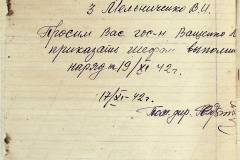 з Мельниченко В.И.
Просим Вас гос-н Ващенко
приказать шефам выполни
наряд на 19/XI 42 г.
17/XI-42 г.
Пом. дир.